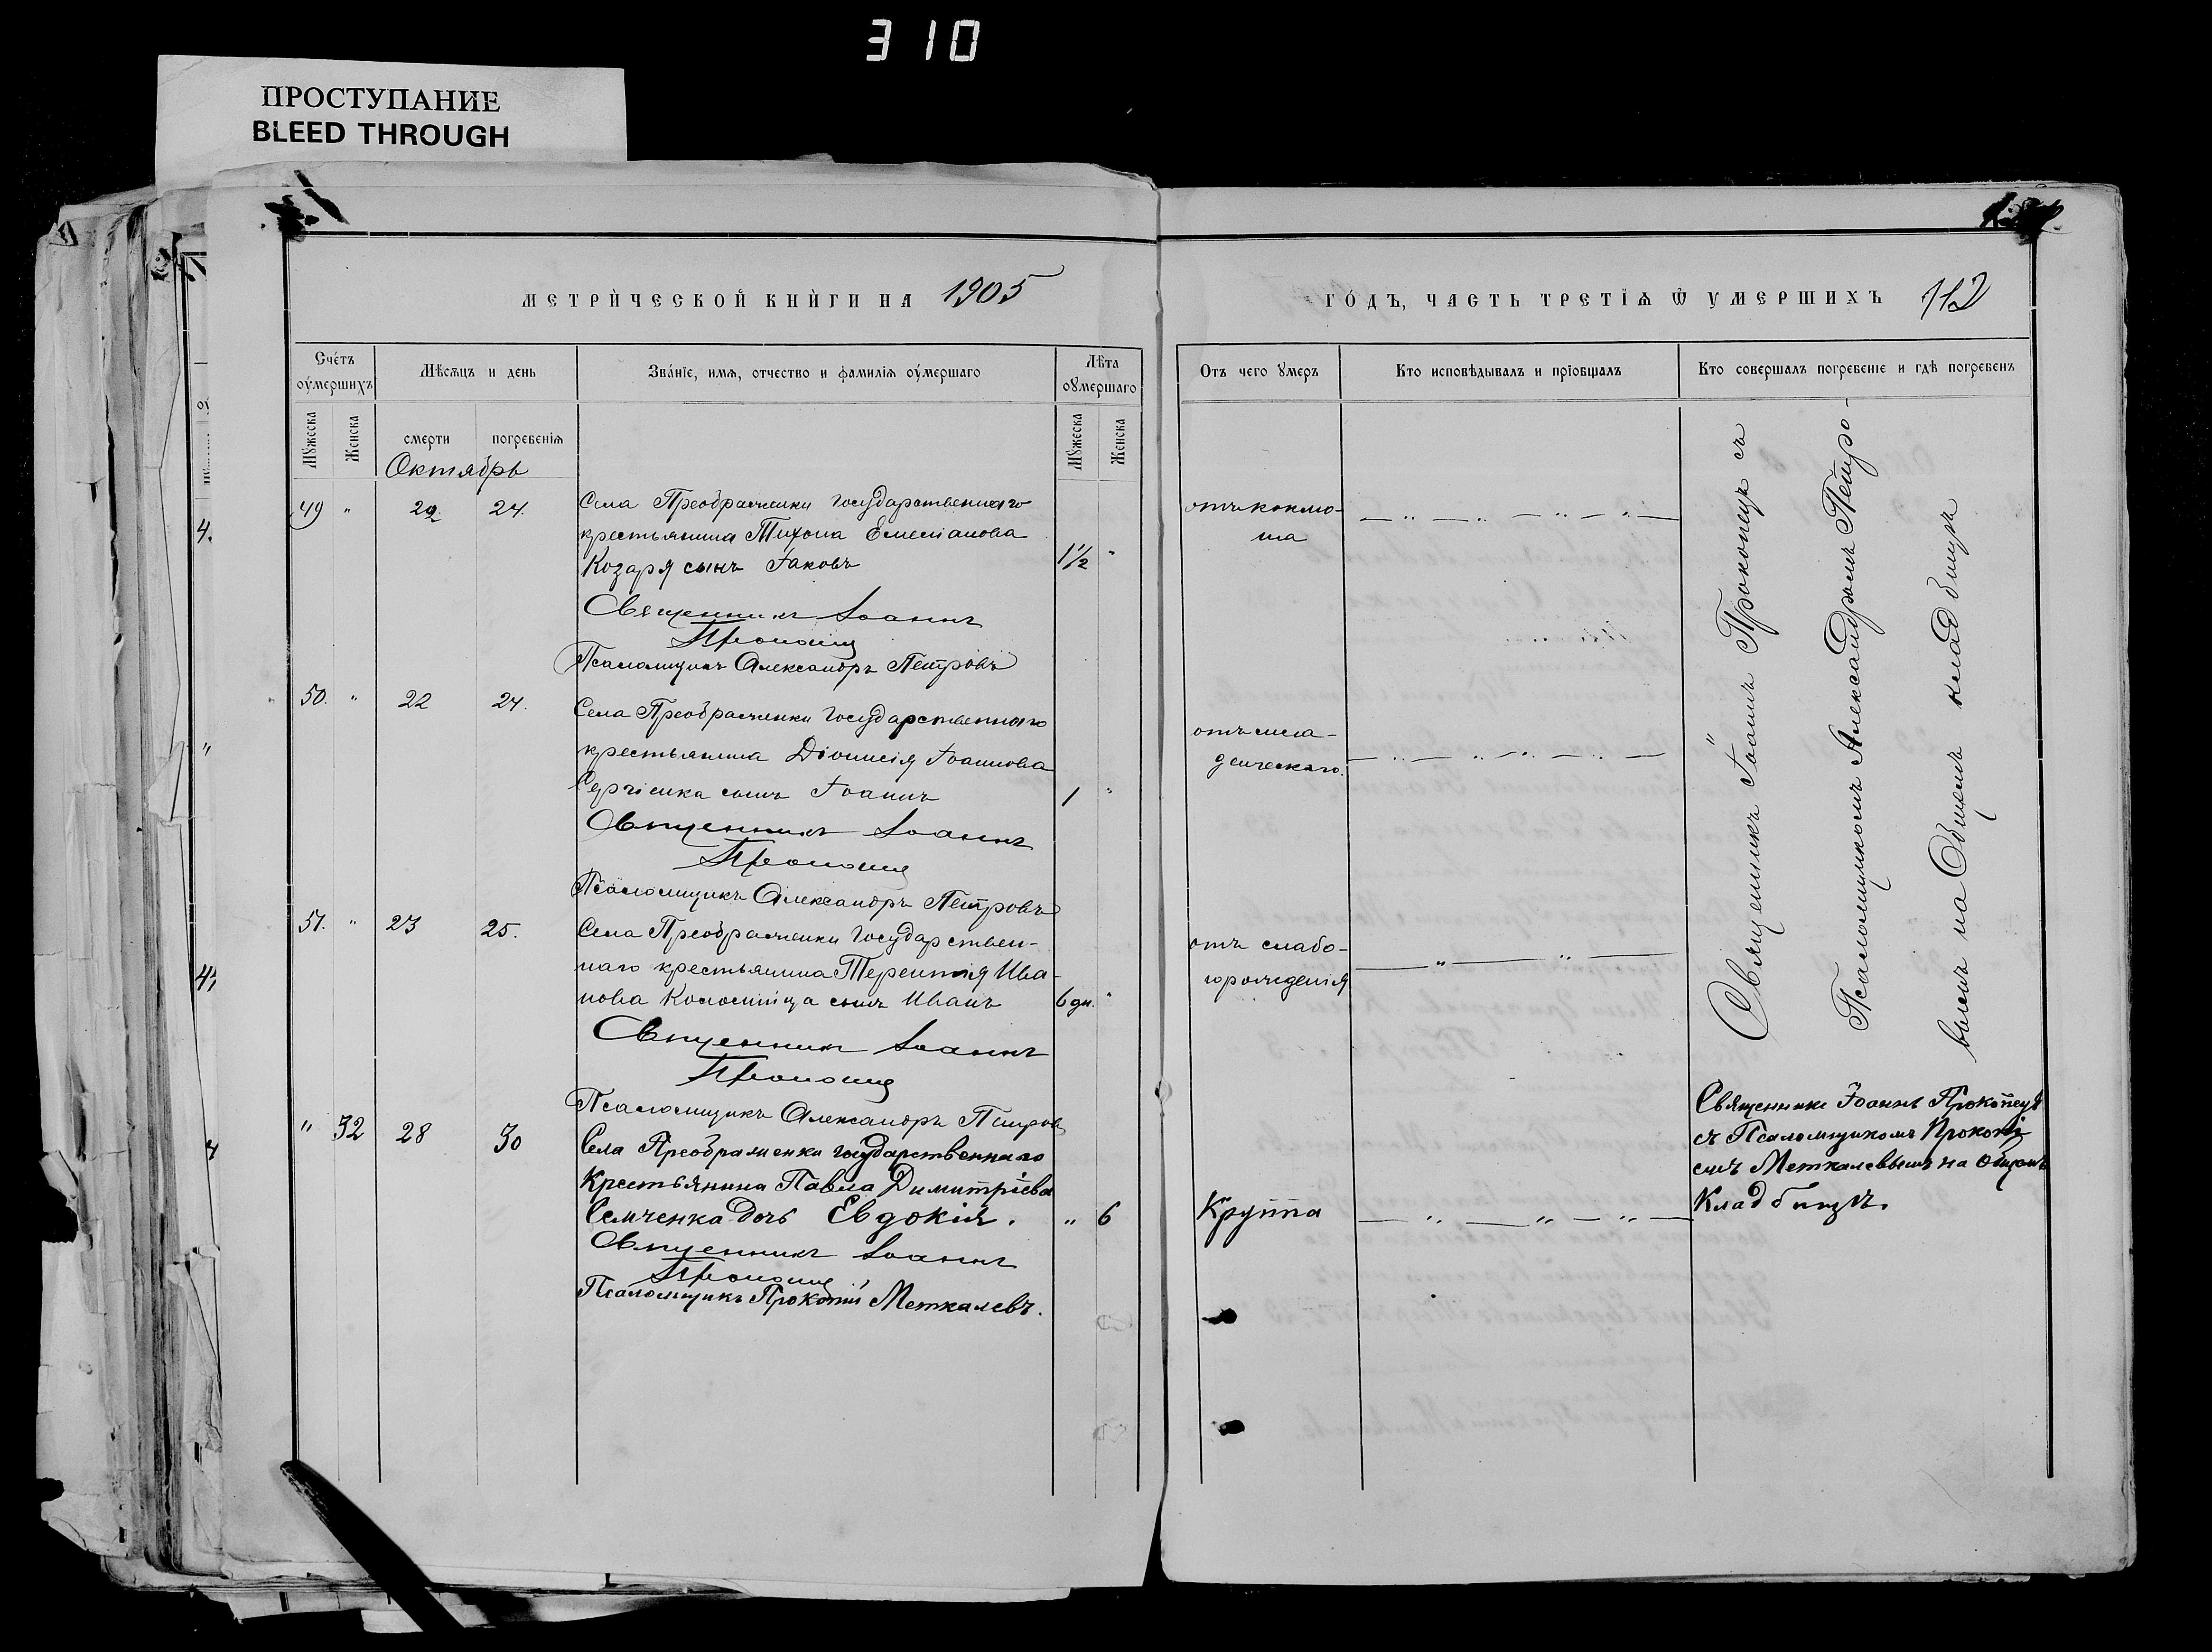 310
ПРОСТУПАНИЕ
BLEED THROUGH
МЕТРИ́ЧЕСКОЙ КНИ́ГИ НА 1905
ГО́ДЪ, ЧАСТЬ ТРЕТІѦ Ѿ УМЕРШИХЪ 112
Счетъ оумершихъ
Мѣсѧцъ и день
Званіе, имѧ, отчество и фамиліѧ оумершаго
Лѣта оумершаго
Отъ чего умеръ
Кто исповѣдывалъ и пріобщалъ
Кто совершалъ погребеніе и гдѣ погребенъ
Мужеска
Женска
смерти
погребеніѧ
Мужеска
Женска
Октябрь
49 " 22 24. Села Преображенки Государственнаго
крестьянина Тихона Емеліанова
Козаря сынъ Іаковъ 1½ "
отъ коклю-
ша
Священникъ Іоаннъ
Прокопецъ
Псаломщикъ Александръ Петровъ
50. " 22 24. Села Преображенки Государственнаго
крестьянина Діонисія Іоаннова
Сергіенка сынъ Іоаннъ 1 "
отъ мла-
денческаго.
Священникъ Іоаннъ
Прокопецъ
Псаломщикъ Александръ Петровъ
51. " 23 25. Села Преображенки Государствен-
наго крестьянина Терентія Ива-
нова Коломійца сынъ Иванъ 6 дн. "
отъ слабо-
горожденія
Священникъ Іоаннъ
Прокопецъ
Псаломщикъ Александръ Петровъ
Священникъ Іоаннъ Прокопецъ съ
Псаломщикомъ Александромъ Петро-
вымъ на Общемъ кладбищѣ
" 32 28 30 Села Преображенки государственнаго
Крестьянина Павла Димитріева
Семченка дочь Евдокія. " 6
Круппа
Священникъ Іоаннъ
Прокопецъ
Псаломщикъ Прокопій Меткалевъ.
Священникъ Іоаннъ Прокопецъ
съ Псаломщикомъ Прокопі
емъ Меткалевымъ на общемъ
Кладбищѣ.